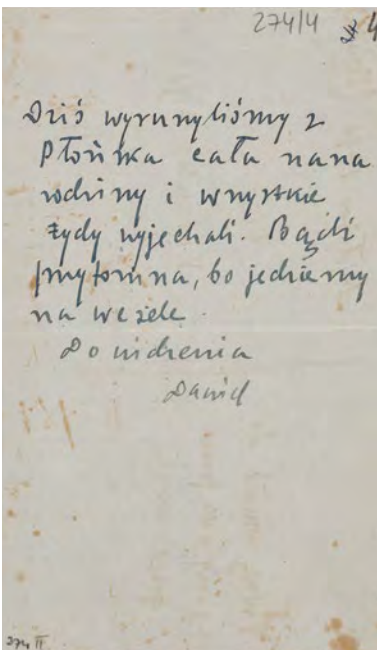 274/4 4
Dziś wyruszyliśmy z
Płońska cała nasza
rodziny i wszystkie
żydy wyjechali. Bądźi
przytomna, bo jedziemy
na wesele.
Do widzenia
Dawid
274 II